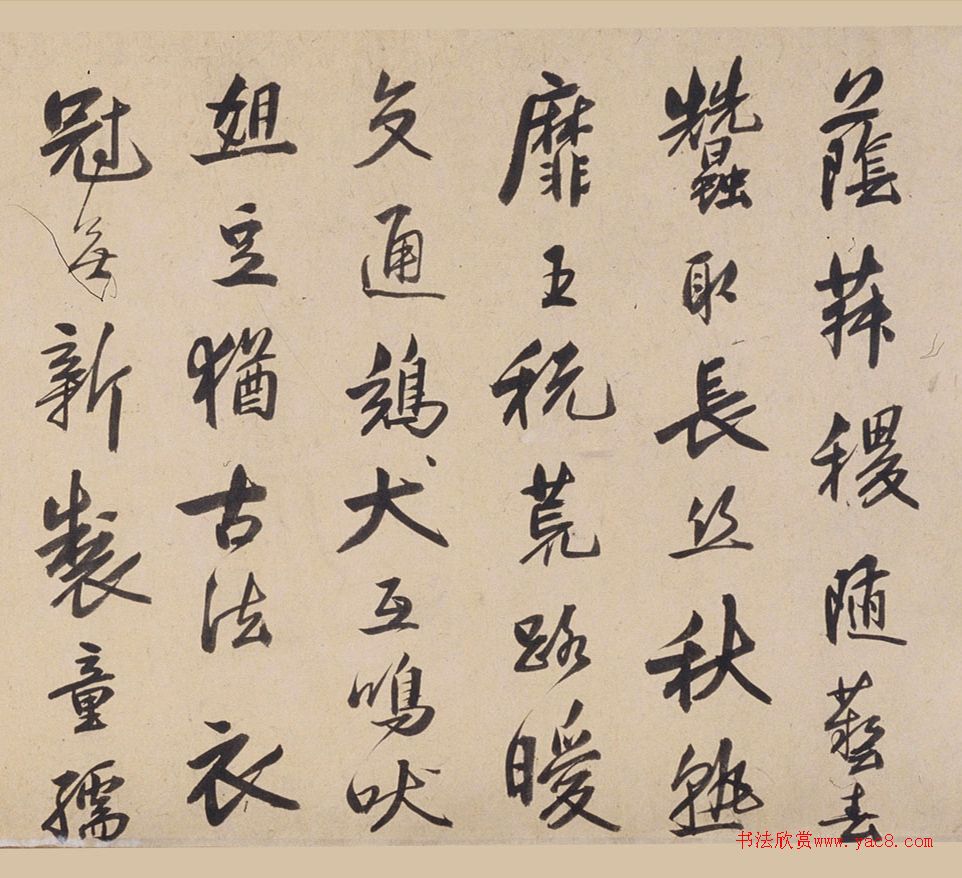 蔭菽稷隨藝春
蠶取長丝秋熟
靡王税荒路曖
交通鷄犬互鳴吠
俎豆猶古法衣
冠無新製童孺
书法欣赏www.yac8.com